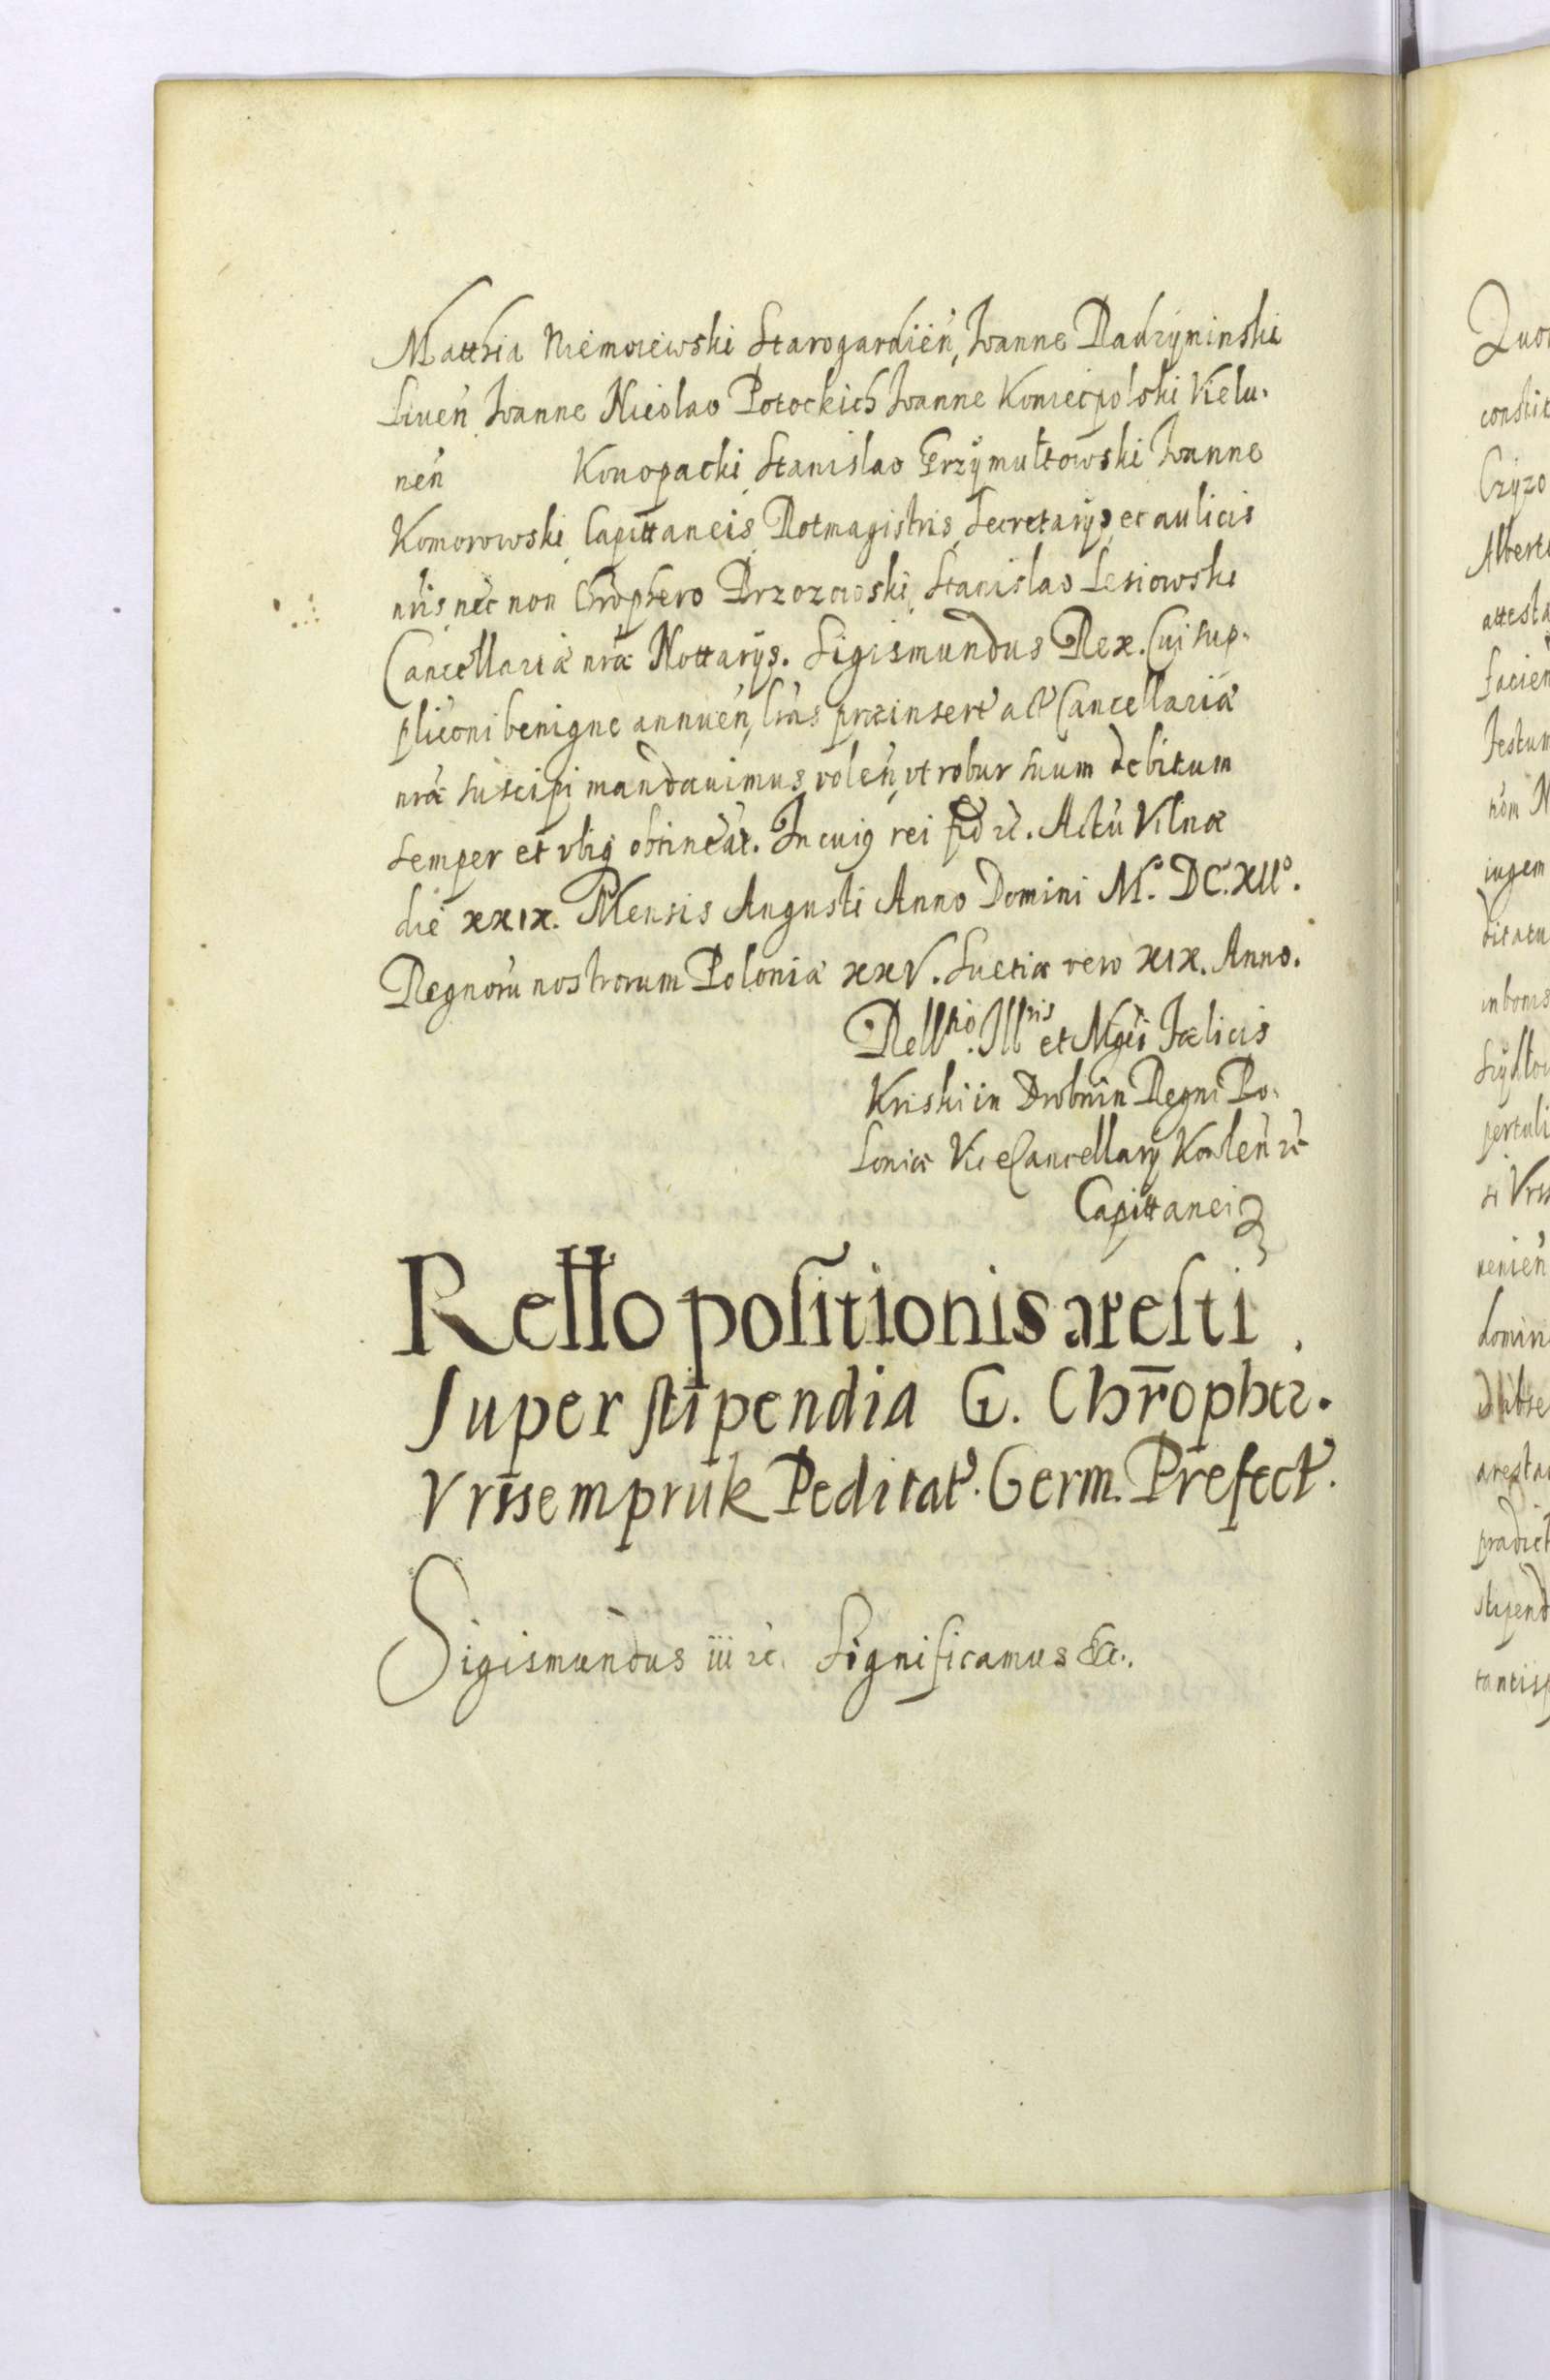 Matthia Niemoiewski Starogardien̄, Ioanne Radzÿminski
Liuen̄, Ioanne Nicolao Potockich Ioanne Koniecpolski Vielu-
nen̄ Konopacki, Stanislao Grzÿmułtowski Ioanne
Komorowski, Capittaneis, Rotmagistris, Secretarÿs, et aulicis
nr̄is, nec non Chr̄ophero Brzozowski, Stanislao Lesiowski
Cancellariæ nr̄æ Nottarÿs. Sigismundus Rex. Cui sup-
pliĉoni benigne annuen̄, lr̄as præinsert̕ act̕ Cancellariæ
nr̄æ suscipi mandauimus, volen̄, vt robur suum debitum
semper et vbiq obtineāt. In cuiꝯ rei fid ꝛc̄. Actū Vilnæ
die xxix. Mensis Augusti Anno Domini M.º DC.XIIº.
Regnorū nostrorum Poloniæ xxv. Suetiæ vero xix. Anno.
Relltio. Illris et Mgci Fælicis
Kriski in Drobnin Regni Po-
loniæ ViceCancellarÿ Kowlen̄ ꝛc̄
Capittanei
Rełło positionis aresti
super stipendia G. Chr̄opher.
Vrssempruk Peditat̕. Germ. Prefect̕.
Sigismundus iii ꝛc. Significamus &c.
Quo
constit
Czÿzo
Albert
attesta
facien̄
iugem
ditatu
in bonis
pertuli
si Vrss
uenien̄
domin
aresta
prædict
stipend
tantisp